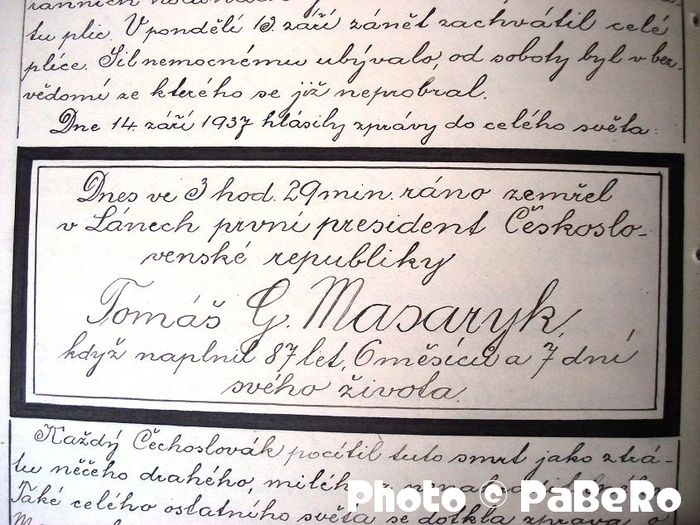 ranních hodinách
tu plic. V pondělí 13. září zánět zachvátil celé
plíce. Sil nemocnému ubývalo, od soboty byl v bez-
vědomí ze kterého se již neprobral.
Dne 14. září 1937 hlásily zprávy do celého světa:
Dnes ve 3 hod. 29 min. ráno zemřel
v Lánech první president Českoslo-
venské republiky
Tomáš G. Masaryk,
když naplnil 87 let, 6 měsíců a 7 dní
svého života.
Každý Čechoslovák pocítil tuto smrt jako ztrá-
tu něčeho drahého, milého a
Také celého ostatního světa se dotkla zpráva
Photo © PaBeRo